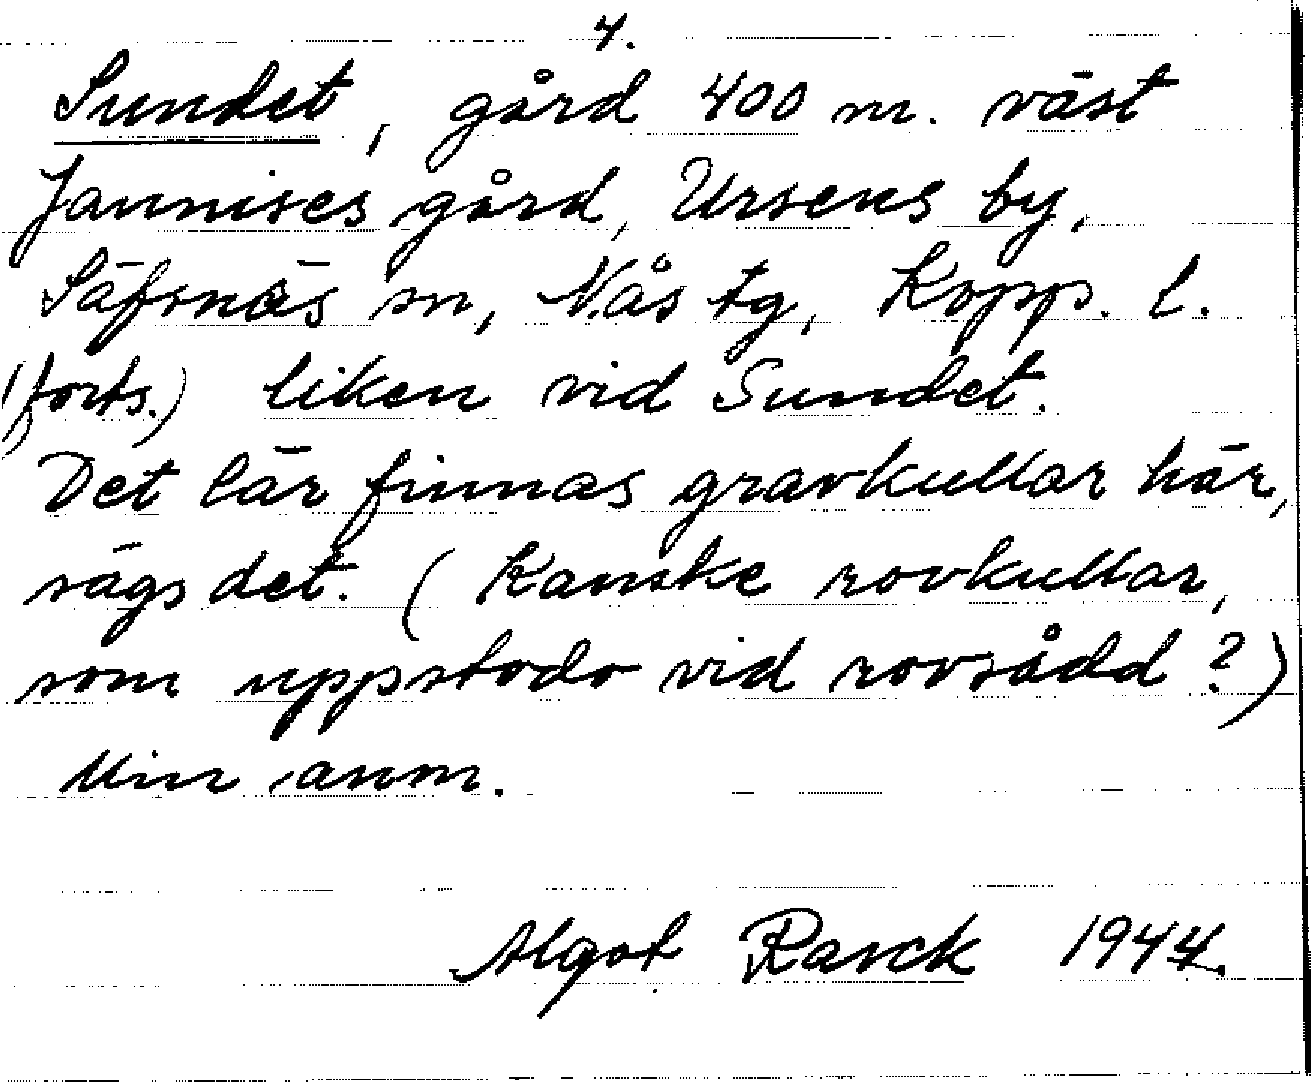 4.
Sundet, gård 400 m. väst
Jannises gård, Ursens by,
Säfsnäs sn, Nås tg, Kopp. l.
(forts.) liken vid Sundet.
Det lär finnas gravkullar här,
sägs det. (Kanske rovkullar,
som uppstodo vid rovsådd?)
Min anm.
Algot Rasck 1944.